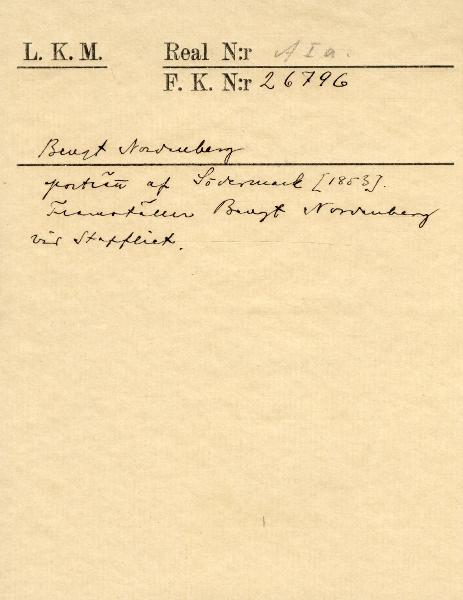 L. K. M. Real N:r A I a.
F. K. N:r 26796
Bengt Nordenberg
porträtt af Södermark [1853].
Framställer Bengt Nordenberg
vid Staffliet.